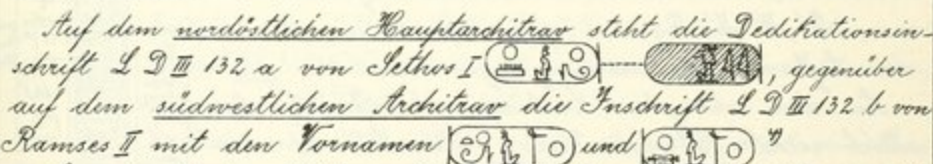 Auf dem nordöstlichen Hauptarchitrav steht die Dedikationsin-
schrift L D III 132 a von Sethos I , gegenüber
auf dem südwestlichen Architrav die Inschrift L D III 132 b von
Ramses II mit den Vornamen und